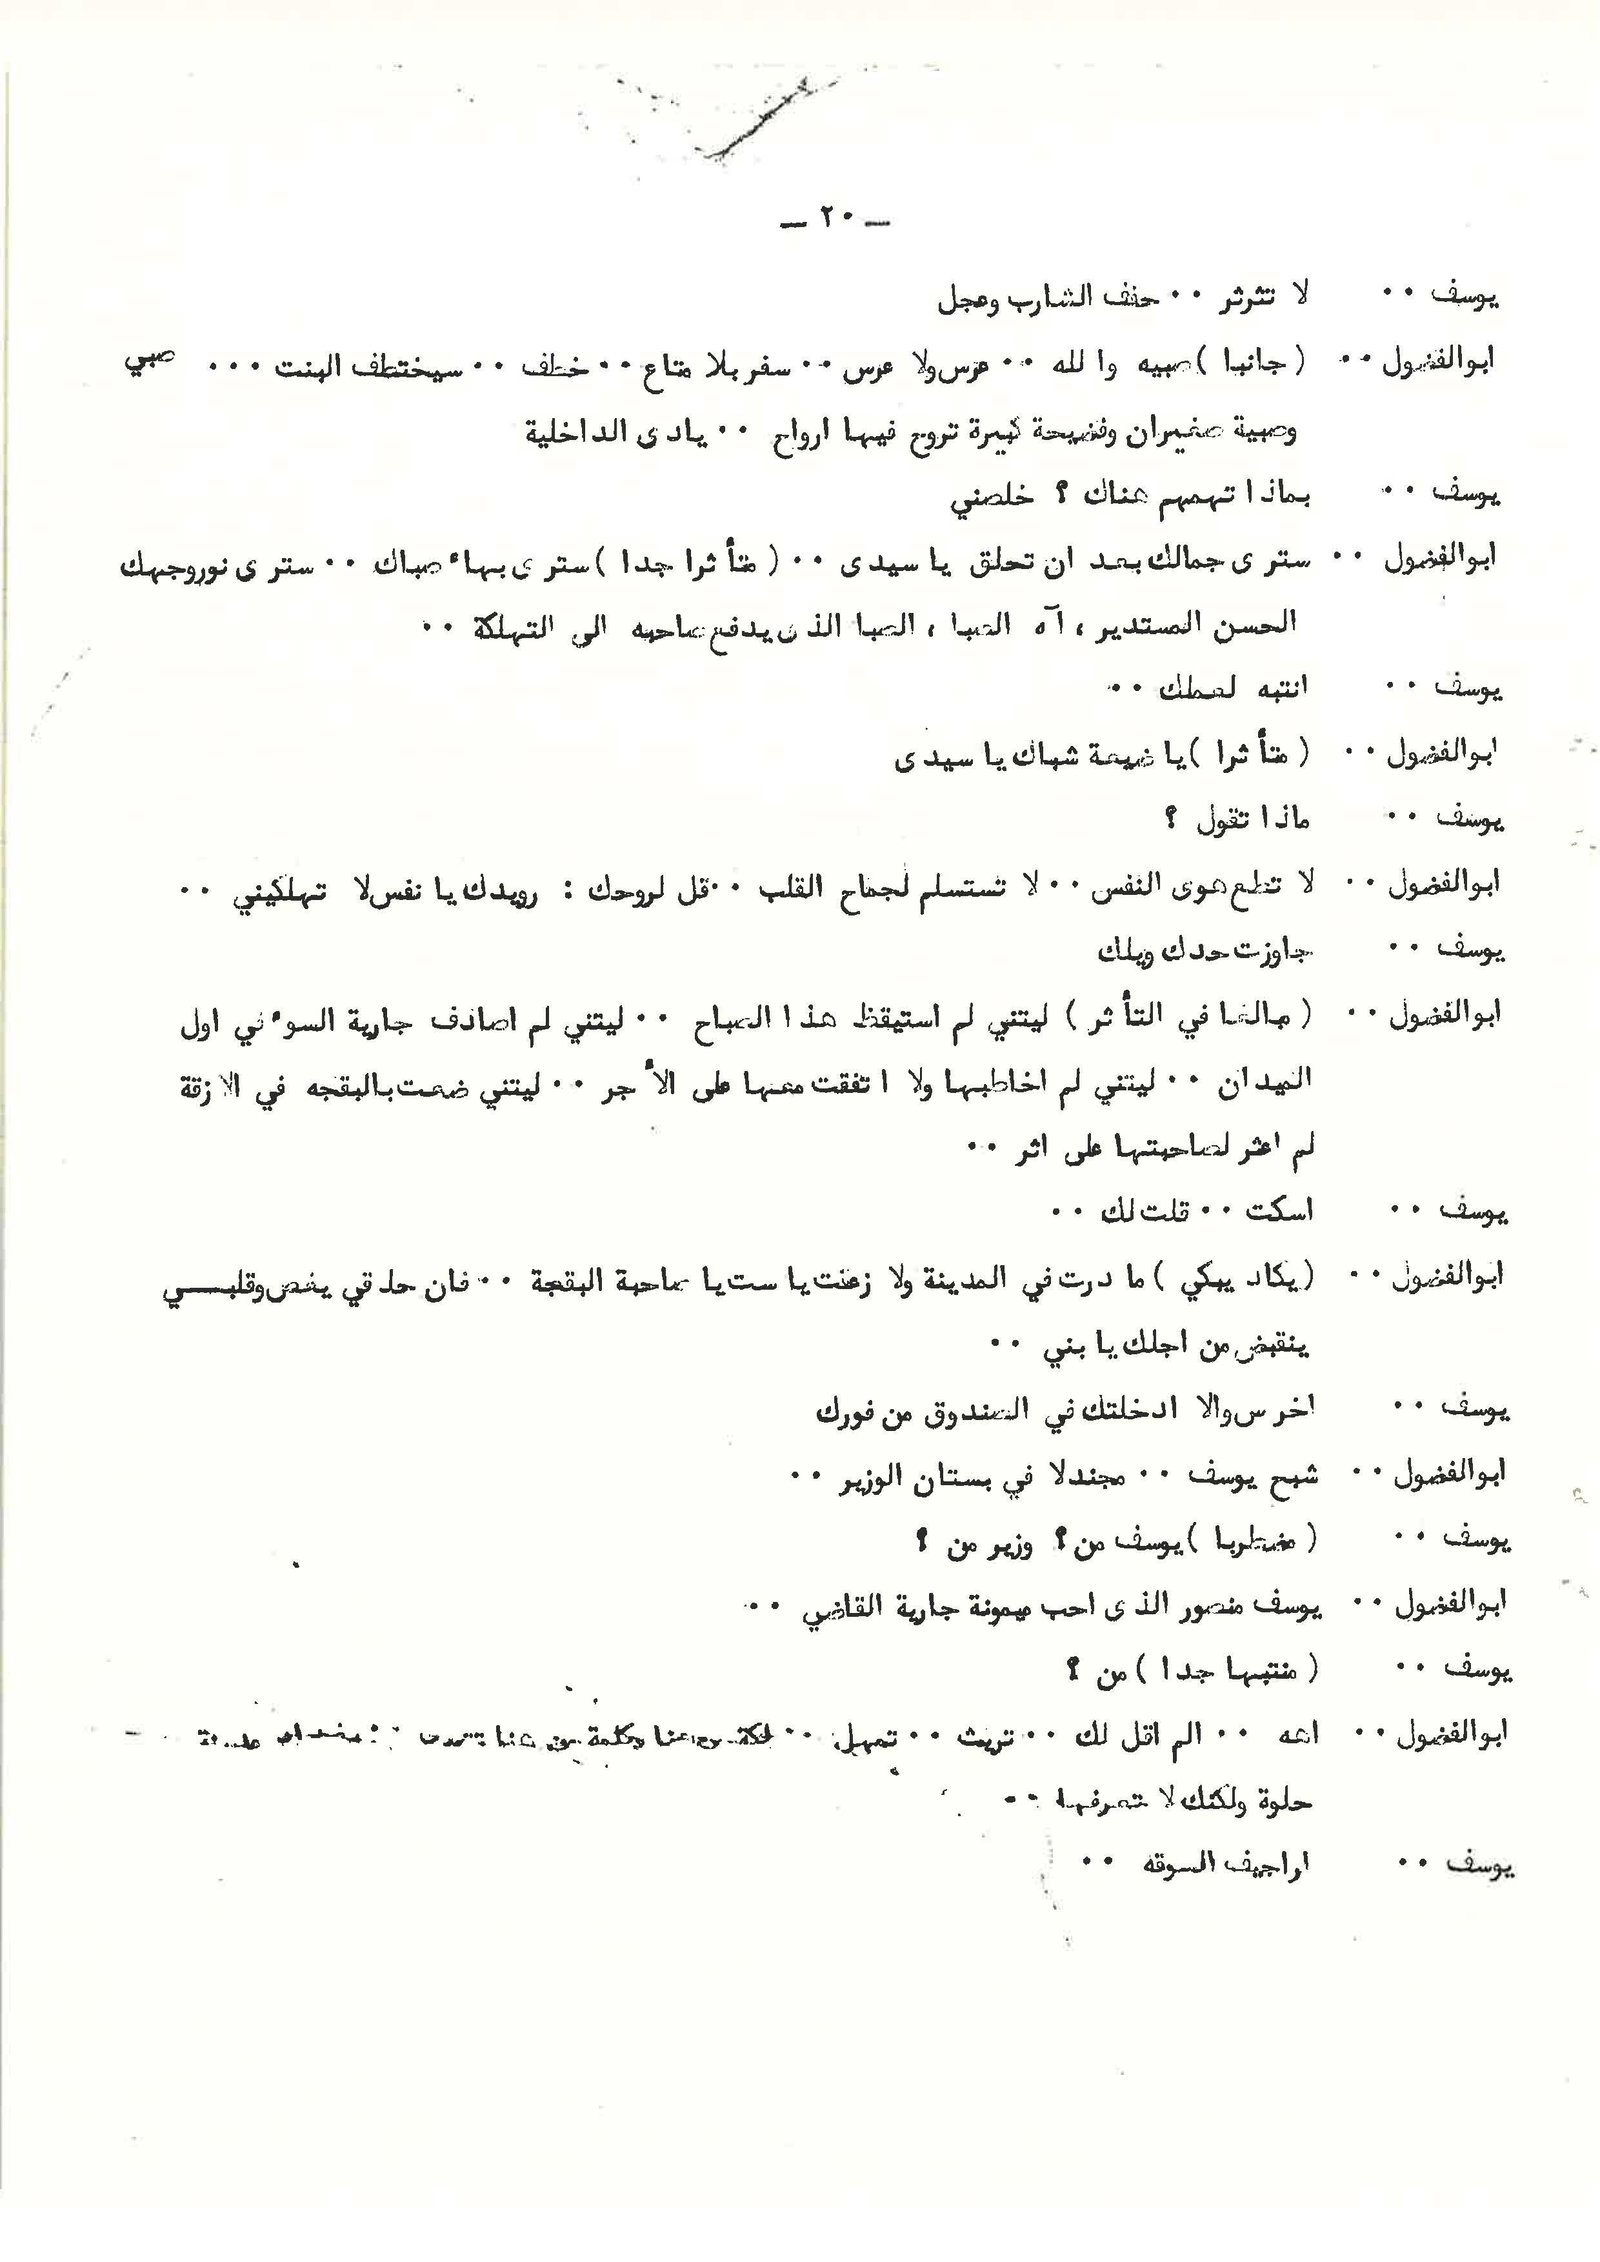 ـ ٢٠ ـ
يوسف ۰۰ لا تثرثر ۰۰ حفف الشارب وعجل
ابوالفضول ۰۰ ( جانبا ) صبيه والله ۰۰ عرس ولا عرس ۰۰ سفر بلا متاع ۰۰ خطف ۰۰ سيختطف البنت ۰۰۰ صبي
وصبية صغيران وفضيحة كبيرة تروح فيها ارواح ۰۰ يادى الداخلية
يوسف ۰۰ بماذا تهمهم هناك ؟ خلصني
ابوالفضول ۰۰ سترى جمالك بعد ان تحلق يا سيدى ۰۰ ( متأثرا جدا ) سترى بهاء صباك ۰۰ سترى نور وجهك
الحسن المستدير ، آه الصبا ، الصبا الذى يدفع صاحبه الى التهلكة ۰۰
يوسف ۰۰ انتبه لعملك ۰۰
ابوالفضول ۰۰ ( متأثرا ) يا ضيعة شبابك يا سيدى
يوسف ۰۰ ماذا تقول ؟
ابوالفضول ۰۰ لا تطع هوى النفس ۰۰ لا تستسلم لجماح القلب ۰۰ قل لروحك : رويدك يا نفس لا تهلكيني ۰۰
يوسف ۰۰ جاوزت حدك ويلك
ابوالفضول ۰۰ ( مبالغا في التأثر ) ليتني لم استيقظ هذا الصباح ۰۰ ليتني لم اصادف جارية السوء في اول
الميدان ۰۰ ليتني لم اخاطبها ولا اتفقت معها على الأجر ۰۰ ليتني ضعت بالبقجه في الازقة
لم اعثر لصاحبتها على اثر ۰۰
يوسف ۰۰ اسكت ۰۰ قلت لك ۰۰
ابوالفضول ۰۰ ( يكاد يبكي ) ما درت في المدينة ولا زعقت يا ست يا صاحبة البقجة ۰۰ فان حلقي يغص وقلبـــي
ينقبض من اجلك يا بني ۰۰
يوسف ۰۰ اخرس والا ادخلتك في الصندوق من فورك
ابوالفضول ۰۰ شبح يوسف ۰۰ مجندلا في بستان الوزير ۰۰
يوسف ۰۰ ( مضطربا ) يوسف من ؟ وزير من ؟
ابوالفضول ۰۰ يوسف منصور الذى احب ميمونة جارية القاضي ۰۰
يوسف ۰۰ ( منتبها جدا ) من ؟
ابوالفضول ۰۰ اهه ۰۰ الم اقل لك ۰۰ تريث ۰۰ تمهل ۰۰ وكلمة من هنا
حلوة ولكنك لا تعرفها ۰۰
يوسف ۰۰ اراجيف السوقه ۰۰